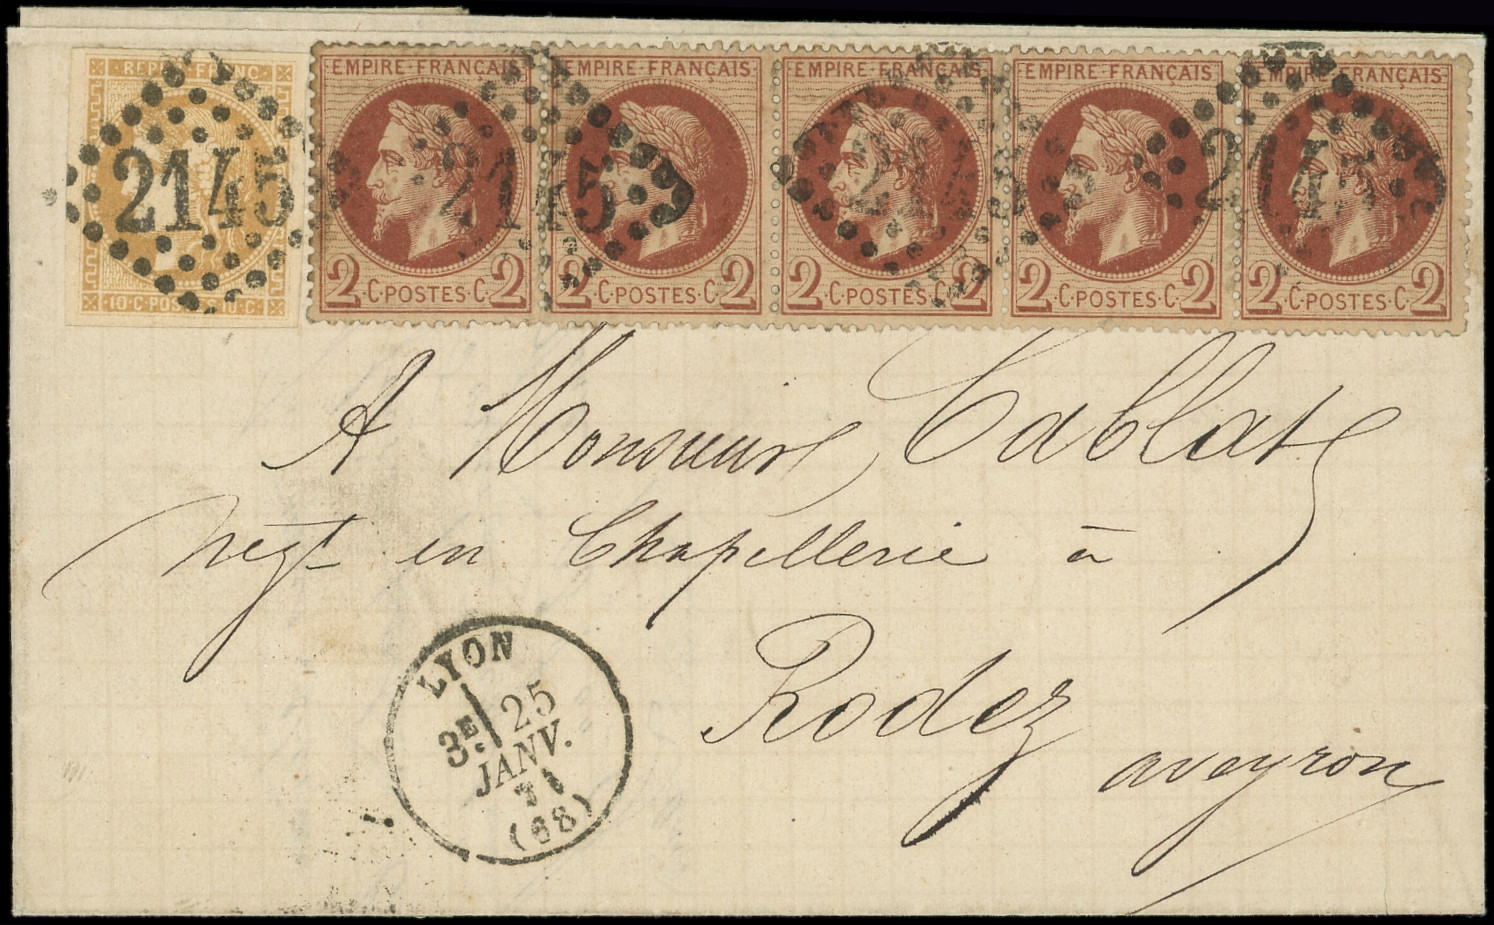 REPUB·FRANC·
2145
10·C·POSTES·10·C·
EMPIRE·FRANÇAIS
2·C·POSTES·C·2
EMPIRE·FRANÇAIS
2·C·POSTES·C·2
EMPIRE·FRANÇAIS
2·C·POSTES·C·2
EMPIRE·FRANÇAIS
2·C·POSTES·C·2
EMPIRE·FRANÇAIS
2·C·POSTES·C·2
2145
2145
A Monsieur Cablat
négt en Chapellerie à
Rodez
aveyron
LYON
3E 25
JANV.
71
(68)